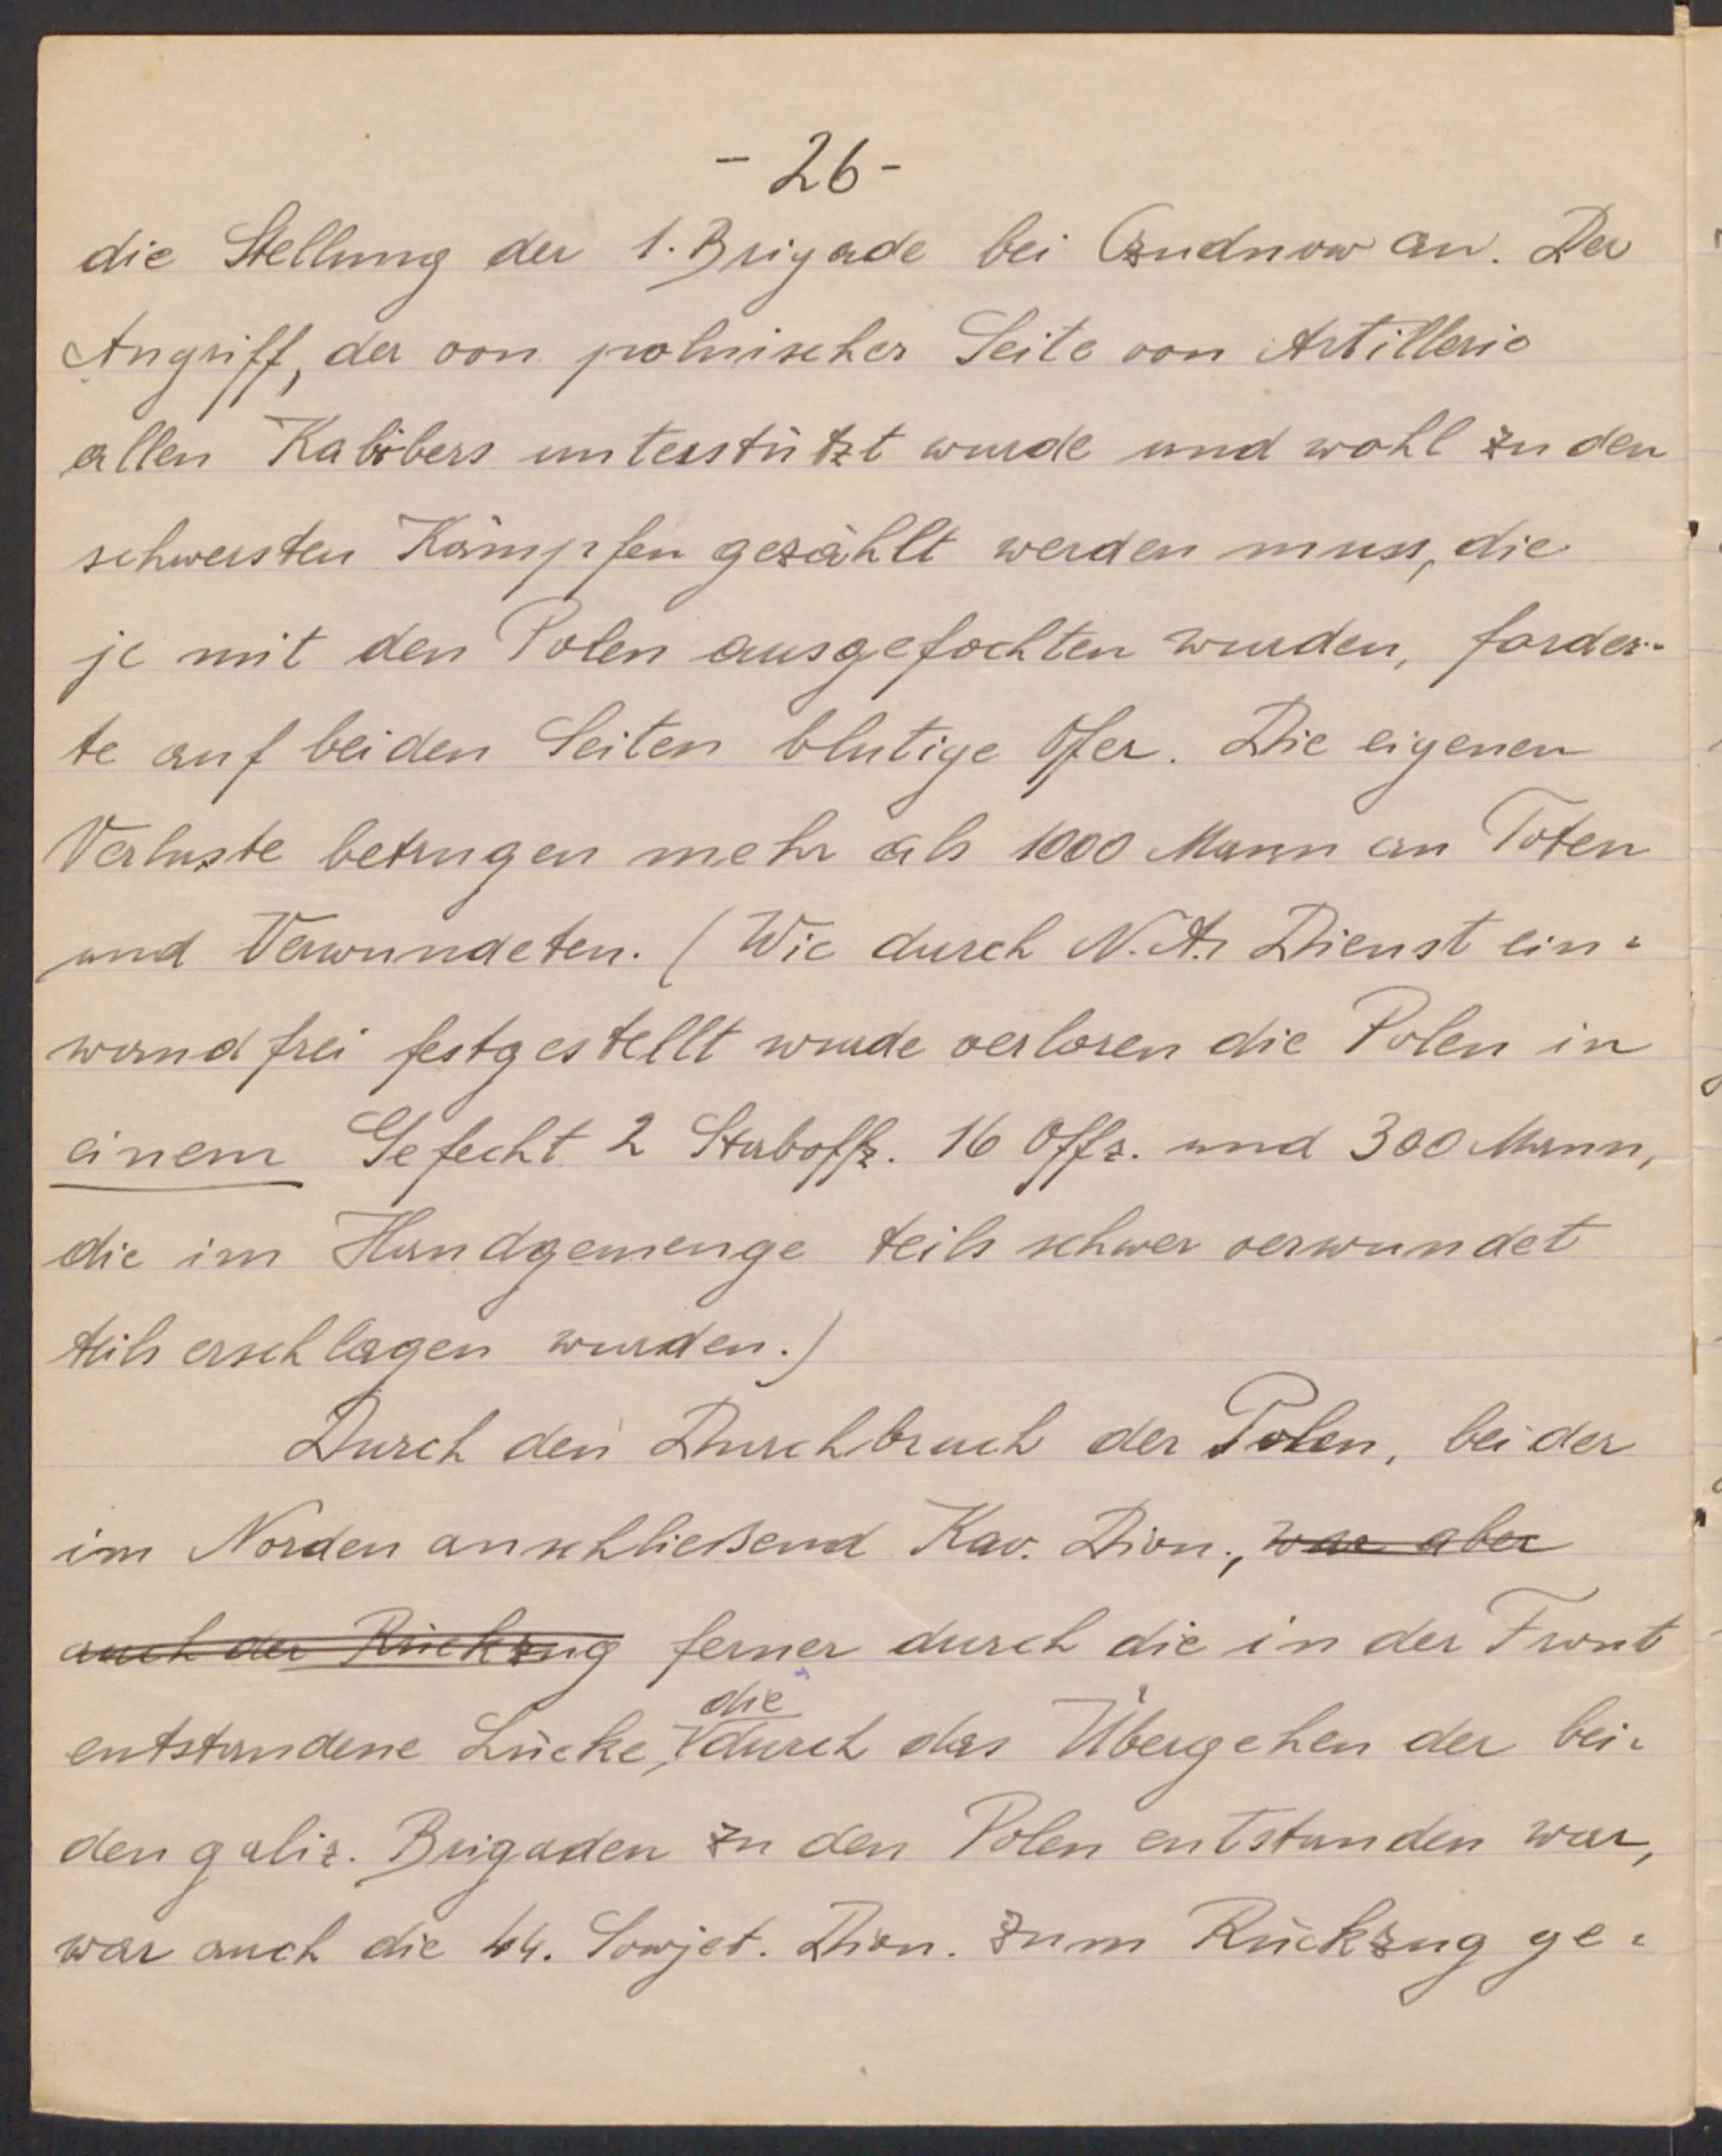 - 26 -
die Stellung der 1. Brigade bei Czudnow an. Der
Angriff, der von polnischer Seite von Artillerie
allen Kalibers unterstützt wurde und wohl zu den
schwersten Kämpfen gezählt werden muss, die
je mit den Polen ausgefochten wurden, forder-
te auf beiden Seiten blutige Ofer. Die eigenen
Verluste betrugen mehr als 1000 Mann an Toten
und Verwundeten. (Wie durch N.A. Dienst ein-
wandfrei festgestellt wurde verloren die Polen in
einem Gefecht 2 Staboffz. 16 Offz. und 300 Mann,
die im Handgemenge teils schwer verwundet
teils erschlagen wurden.)
Durch den Durchbruch der Polen, bei der
im Norden anschließend Kav. Dion., war aber
auch der Rückzug ferner durch die in der Front
entstandene Lücke, die durch das Übergehen der bei-
den galiz. Brigaden zu den Polen entstanden war,
war auch die 44. Sowjet. Dion. zum Rückzug ge-